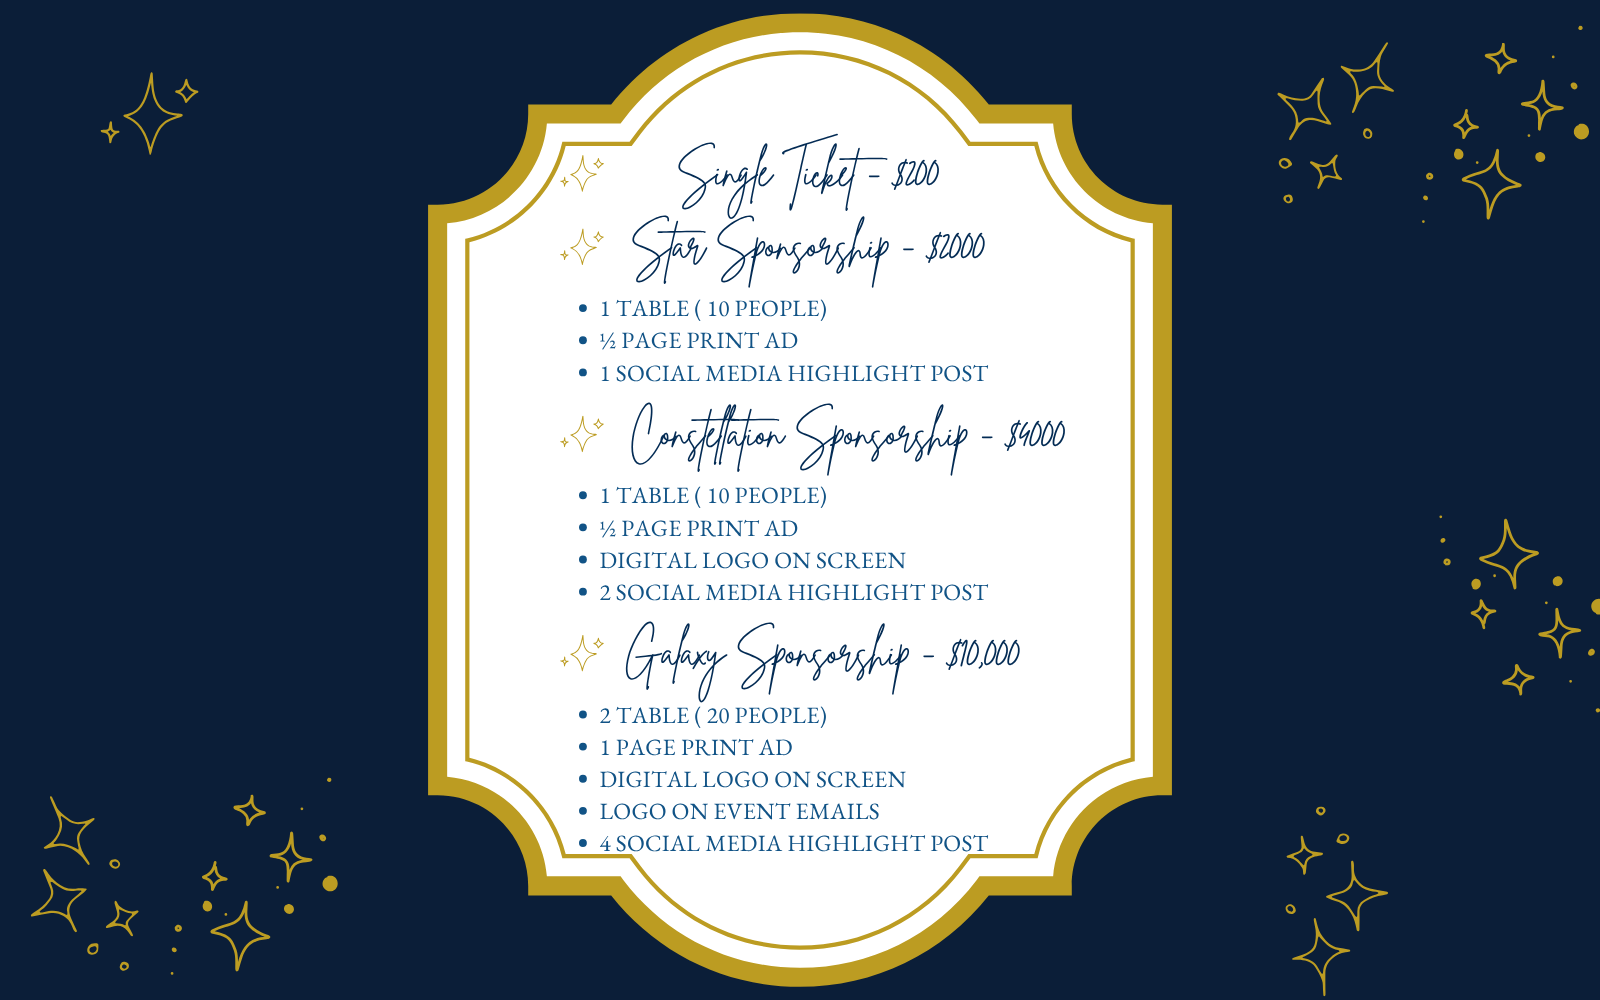 Single Ticket - $200
Star Sponsorship - $2000
• 1 TABLE ( 10 PEOPLE)
• ½ PAGE PRINT AD
• 1 SOCIAL MEDIA HIGHLIGHT POST
Constellation Sponsorship - $4000
• 1 TABLE ( 10 PEOPLE)
• ½ PAGE PRINT AD
• DIGITAL LOGO ON SCREEN
• 2 SOCIAL MEDIA HIGHLIGHT POST
Galaxy Sponsorship - $10,000
• 2 TABLE ( 20 PEOPLE)
• 1 PAGE PRINT AD
• DIGITAL LOGO ON SCREEN
• LOGO ON EVENT EMAILS
• 4 SOCIAL MEDIA HIGHLIGHT POST